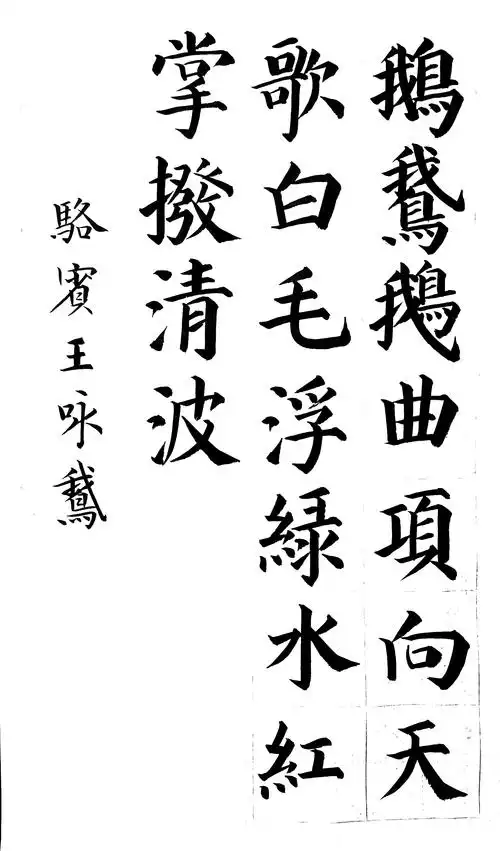 鵝鵞鵝曲項向天
歌白毛浮緑水紅
掌撥清波
駱賓王咏鵞